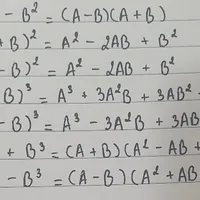 - B² = (A-B)(A+B)
+ B)² = A² - 2AB + B²
- B)² = A² - 2AB + B²
B)³ = A³ + 3A²B + 3AB²
- B)³ = A³ - 3A²B + 3AB
+ B³ = (A+B)(A² - AB +
- B³ = (A-B)(A² + AB